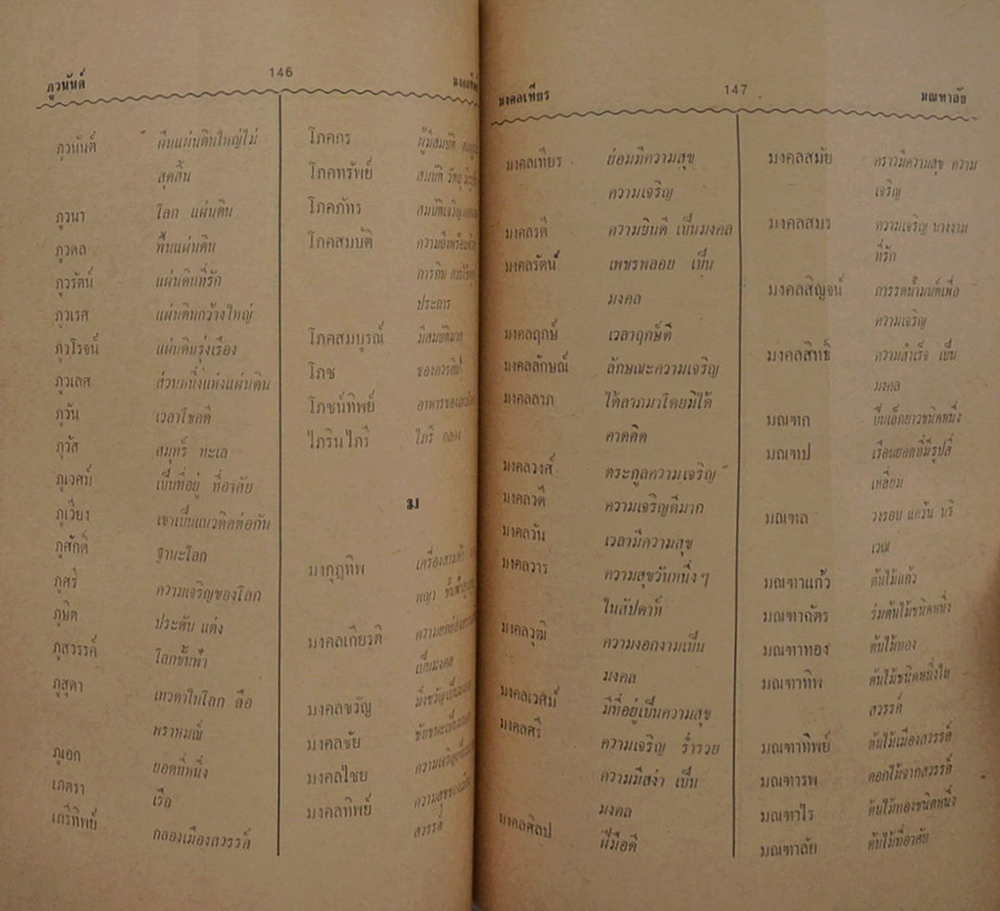 ภูวนันต์ 146
ภูวนันต์ ผืนแผ่นดินใหญ่ไม่
สุดสิ้น
ภูวนา โลก แผ่นดิน
ภูวดล พื้นแผ่นดิน
ภูวรัตน์ แผ่นดินที่รัก
ภูวเรศ แผ่นดินกว้างใหญ่
ภูวโรจน์ แผ่นดินรุ่งเรือง
ภูวเลศ ส่วนหนึ่งแห่งแผ่นดิน
ภูวัน เวลาโชคดี
ภูวัส สมุทร์ ทะเล
ภูเวศม์ เป็นที่อยู่ ที่อาศัย
ภูเวียง เขาเป็นแนวติดต่อกัน
ภูศักดิ์ ฐานะโลก
ภูศรี ความเจริญของโลก
ภูษิต ประดับ แต่ง
ภูสวรรค์ โลกชั้นฟ้า
ภูสุดา เทวดาในโลก คือ
พราหมณ์
ภูเอก ยอดที่หนึ่ง
เภตรา เรือ
เภรีทิพย์ กลองเมืองสวรรค์
โภคกร ผู้มีสมบัติ
โภคทรัพย์ สมบัติ วัตถุ
โภคภัทร สมบัติเจริญ
โภคสมบัติ
การกิน
ประการ
โภคสมบูรณ์ มีสมบัติมาก
โภช
โภชน์ทิพย์
ไภรินไภรี ไภรี กลอง
ม
มงกุฎทิพ
มงคลเกียรติ
เป็นมงคล
มงคลขวัญ
มงคลชัย
มงคลไชย
มงคลทิพย์
สวรรค์
มงคลเทียร 147 มณฑาลัย
มงคลเทียร ย่อมมีความสุข
ความเจริญ
มงคลรดี ความยินดี เป็นมงคล
มงคลรัตน์ เพชรพลอย เป็น
มงคล
มงคลฤกษ์ เวลาฤกษ์ดี
มงคลลักษณ์ ลักษณะความเจริญ
มงคลลาภ ได้ลาภมาโดยมิได้
คาดคิด
มงคลวงศ์ ตระกูลความเจริญ
มงคลวดี ความเจริญดีมาก
มงคลวัน เวลามีความสุข
มงคลวาร ความสุขวันหนึ่ง ๆ
ในสัปดาห์
มงคลวุฒิ ความงอกงามเป็น
มงคล
มงคลเวศม์ มีที่อยู่เป็นความสุข
มงคลศรี ความเจริญ ร่ำรวย
ความมีสง่า เป็น
มงคล
มงคลศิลป ฝีมือดี
มงคลสมัย คราวมีความสุข ความ
เจริญ
มงคลสมร ความเจริญ นางงาม
ที่รัก
มงคลสิญจน์ การรดน้ำมนต์เพื่อ
ความเจริญ
มงคลสิทธิ์ ความสำเร็จ เป็น
มงคล
มณฑก ปืนเล็กยาวชนิดหนึ่ง
มณฑป เรือนยอดที่มีรูปสี่
เหลี่ยม
มณฑล วงรอบ แคว้น บริ
เวณ
มณฑาแก้ว ต้นไม้แก้ว
มณฑาฉัตร ร่มต้นไม้ชนิดหนึ่ง
มณฑาทอง ต้นไม้ทอง
มณฑาทิพ ต้นไม้ชนิดหนึ่งใน
สวรรค์
มณฑาทิพย์ ต้นไม้เมืองสวรรค์
มณฑารพ ดอกไม้จากสวรรค์
มณฑาไร ต้นไม้ทองชนิดหนึ่ง
มณฑาลัย ต้นไม้ที่อาศัย